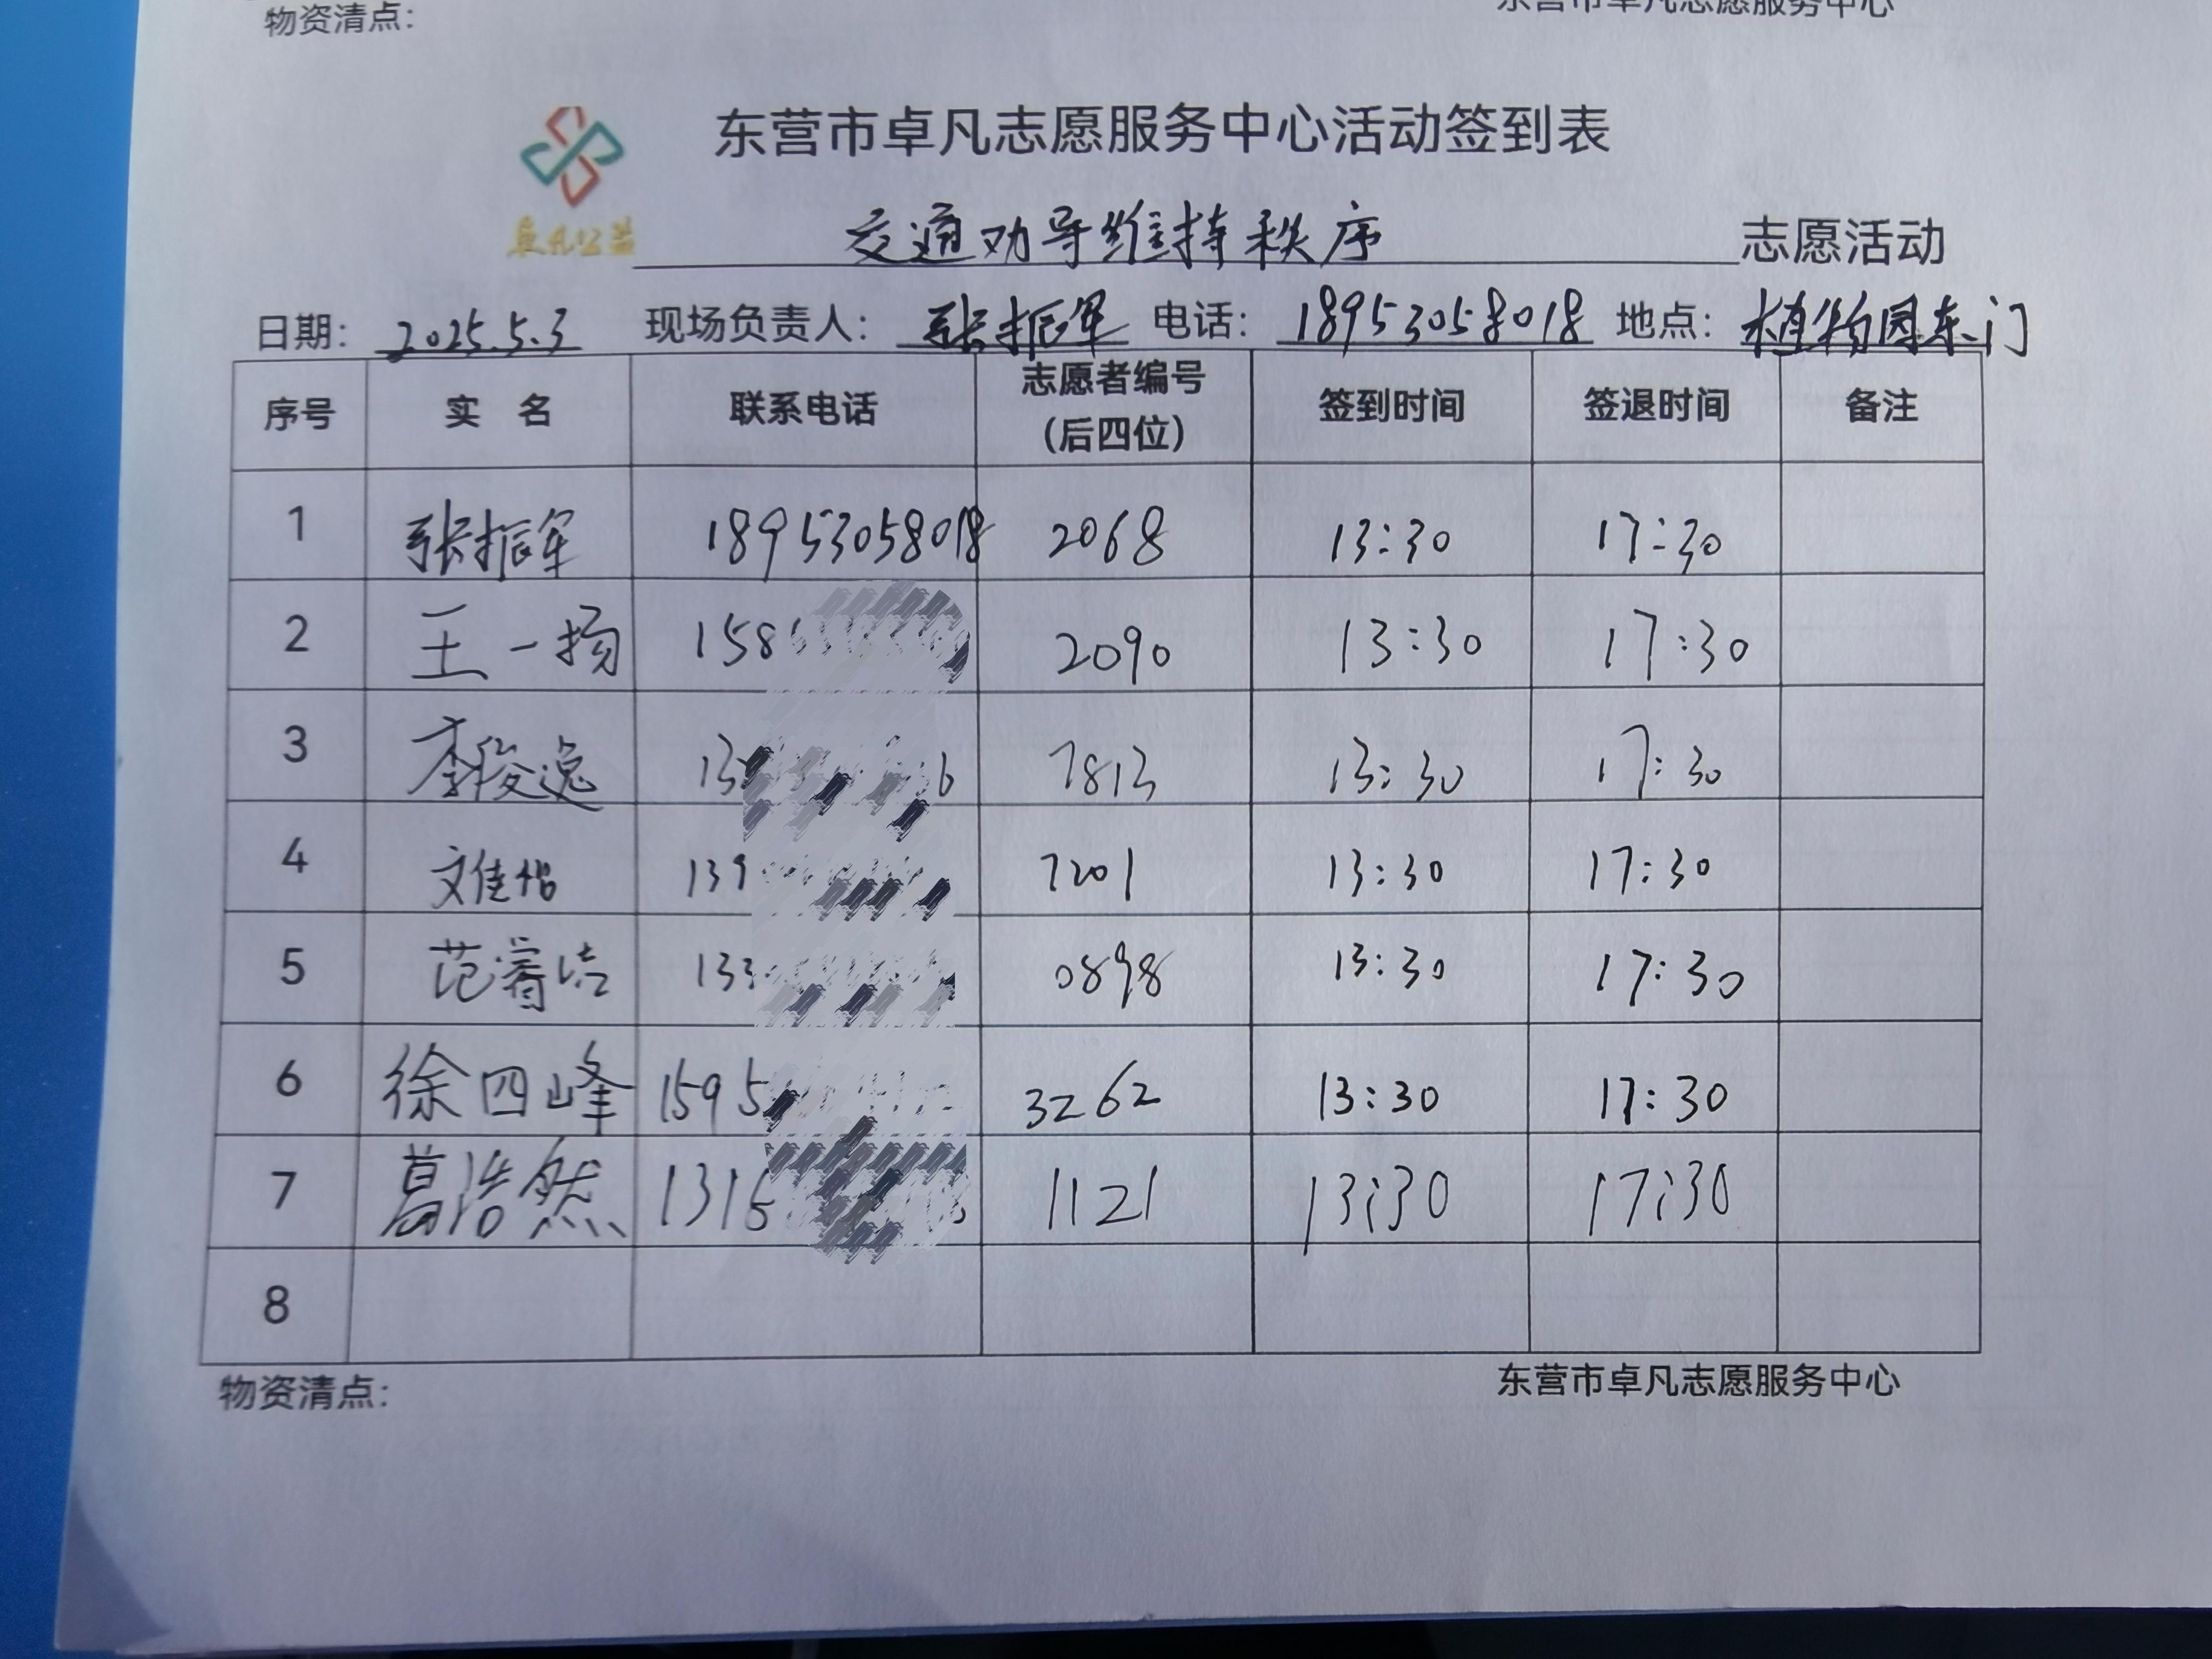 物资清点:
东营市卓凡志愿服务中心
东营市卓凡志愿服务中心活动签到表
卓凡公益
交通劝导维持秩序 志愿活动
日期: 2025.5.3 现场负责人: 张振军 电话: 18953058018 地点: 植物园东门
序号 实 名 联系电话 志愿者编号(后四位) 签到时间 签退时间 备注
1 张振军 18953058018 2068 13:30 17:30
2 王一扬 158 2090 13:30 17:30
3 李俊逸 13 6 7813 13:30 17:30
4 文佳怡 139 7201 13:30 17:30
5 范睿洁 133 0898 13:30 17:30
6 徐四峰 1595 3262 13:30 17:30
7 葛浩然 1315 1121 13:30 17:30
8
物资清点:
东营市卓凡志愿服务中心